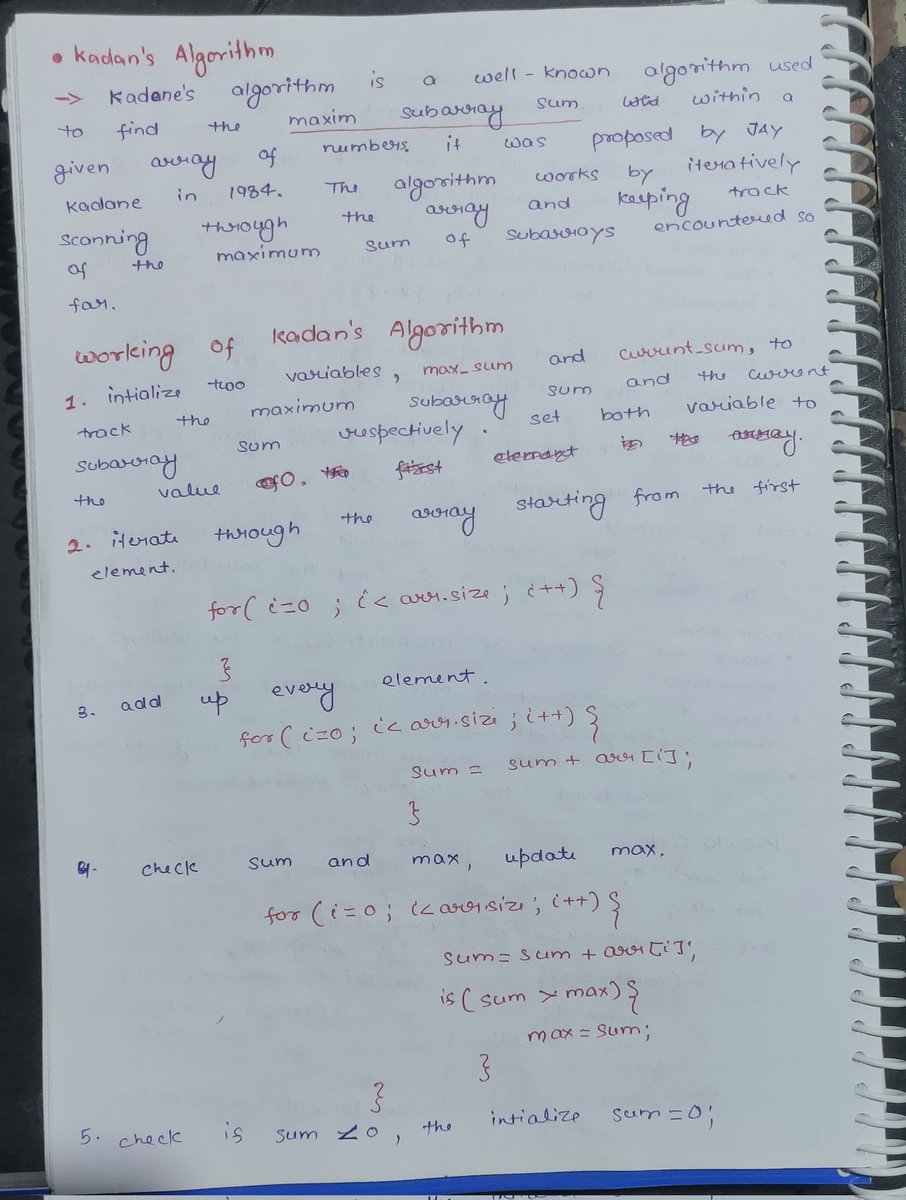 • Kadan's Algorithm
→ Kadane's algorithm is a well-known algorithm used
to find the maxim subarray sum within a
given array of numbers. it was proposed by JAY
Kadane in 1984. The algorithm works by iteratively
scanning through the array and keeping track
of the maximum sum of subarrays encountered so
far.
working of Kadan's Algorithm
1. intialize two variables, max_sum and current_sum, to
track the maximum subarray sum and the current
subarray sum respectively. set both variable to
the value 0. the first element in the array.
2. iterate through the array starting from the first
element.
for( i=0 ; i< arr.size ; i++) {
}
3. add up every element.
for( i=0; i< arr.size ; i++) {
sum = sum + arr[i];
}
4. check sum and max, update max.
for (i=0; i<arr.size; i++) {
sum = sum + arr[i];
is( sum > max) {
max = sum;
}
}
5. check is sum <0, the intialize sum=0;